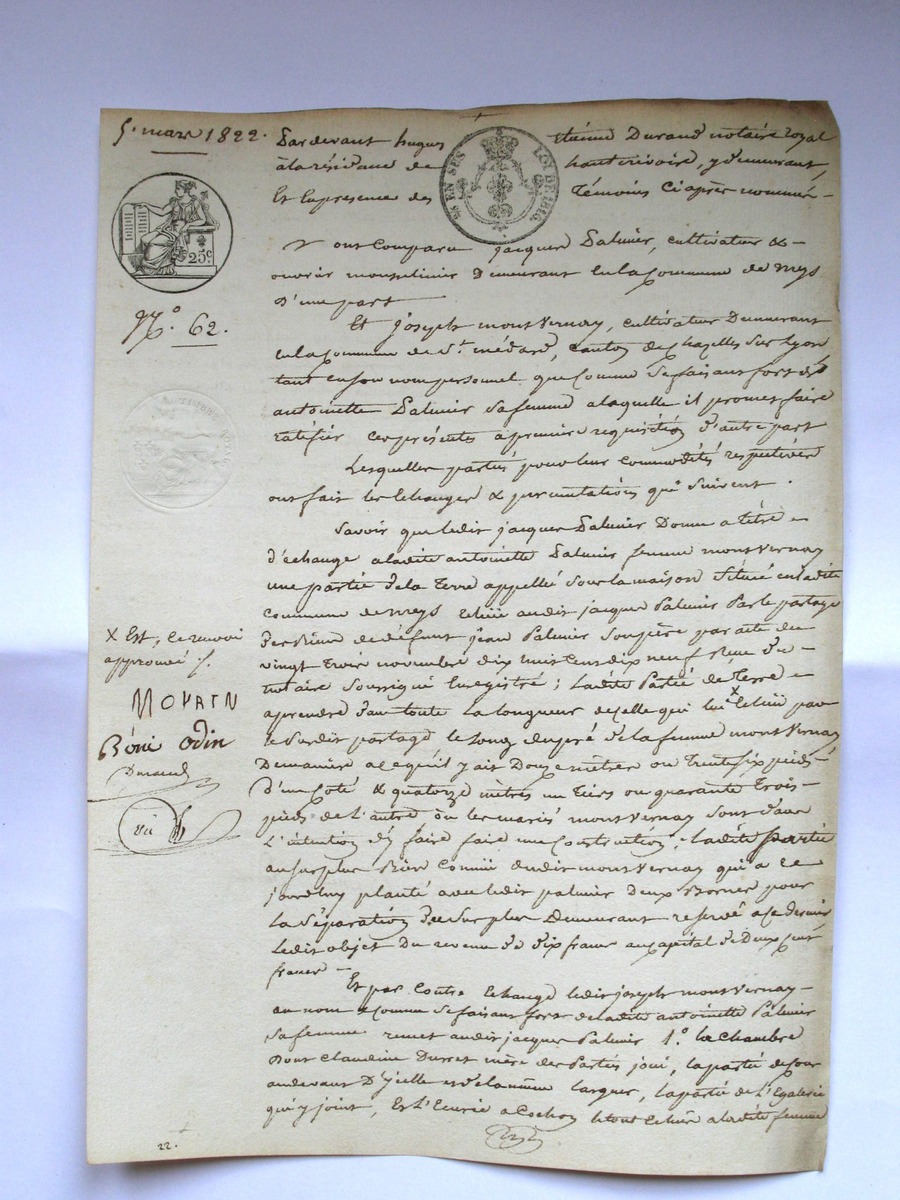 5. mars 1822.
Pardevant hugues étienne Durand notaire royal
à la résidence de hauterivoire, y demeurant,
Et En presence des Témoins Ci après nommés
EN SUS LOI DE 1816.
25c
Nº. 62.
Ont Comparu jacques Palmier, cultivateur &
ouvrier mousselinier Demeurant En la Commune de meys
D'une part
Et joseph montVernay, cultivateur Demeurant
en la Commune de St. médard, canton de chazelles Sur Lyon
tant en Son nom personnel que Comme Se faisant fort de
antoinette Palmier Sa femme a laquelle il promet faire
ratifier Ces présentes à première requisition D'autre part
Lesquelles parties pour leur commodités respectives
ont fait les Echanges & permutations qui Suivent.
Savoir que ledit jacques Palmier Donne a titre
d'échange a ladite antoinette Palmier femme montVernay
une partie de la Terre appellée Sous la maison Située en ladite
Commune de meys Echue audit jacques Palmier Par le partage
des Biens de défunt jean Palmier Son père par acte du
vingt Trois novembre dix huit Cent dix neuf Reçu du
notaire Soussigné Enregistré; Ladite Partie de Terre
aprendre dans toute La Longueur de celle qui lui x Echue par
le Susdit partage le Long du pré de la femme montVernay
De manière a ce qu'il y ait Douze mètres ou Trente Six pieds
d'un Côté & quatorze mètres un Tiers ou quarante Trois
pieds de L'autre où les mariés montVernay Sont dans
L'intention d'y faire faire une Construction; Ladite partie
au Surplus Bien Connue dudit montVernay qui a ce
jourd'huy planté avec ledit palmier Deux Bornes pour
La Séparation du Surplus Demeurant reservé a ce dernier
Ledit objet Du revenu de dix francs au capital de Deux Cent
francs
Et par Contre Echange ledit joseph montVernay
au nom & Comme Se faisant fort de ladite antoinette Palmier
Sa femme remet audit jacques Palmier 1.º la Chambre
Dont Claudine Durret mère des Parties jouit, la partie de Cour
au devant D'icelle Et de la même largeur, la partie de L'Egalerie
qui y joint, Et L'Ecurie a Cochon le tout Echu a ladite femme
X Est, le renvoi
approuvé
MOVRIN
Béni Odin
Durand
22.